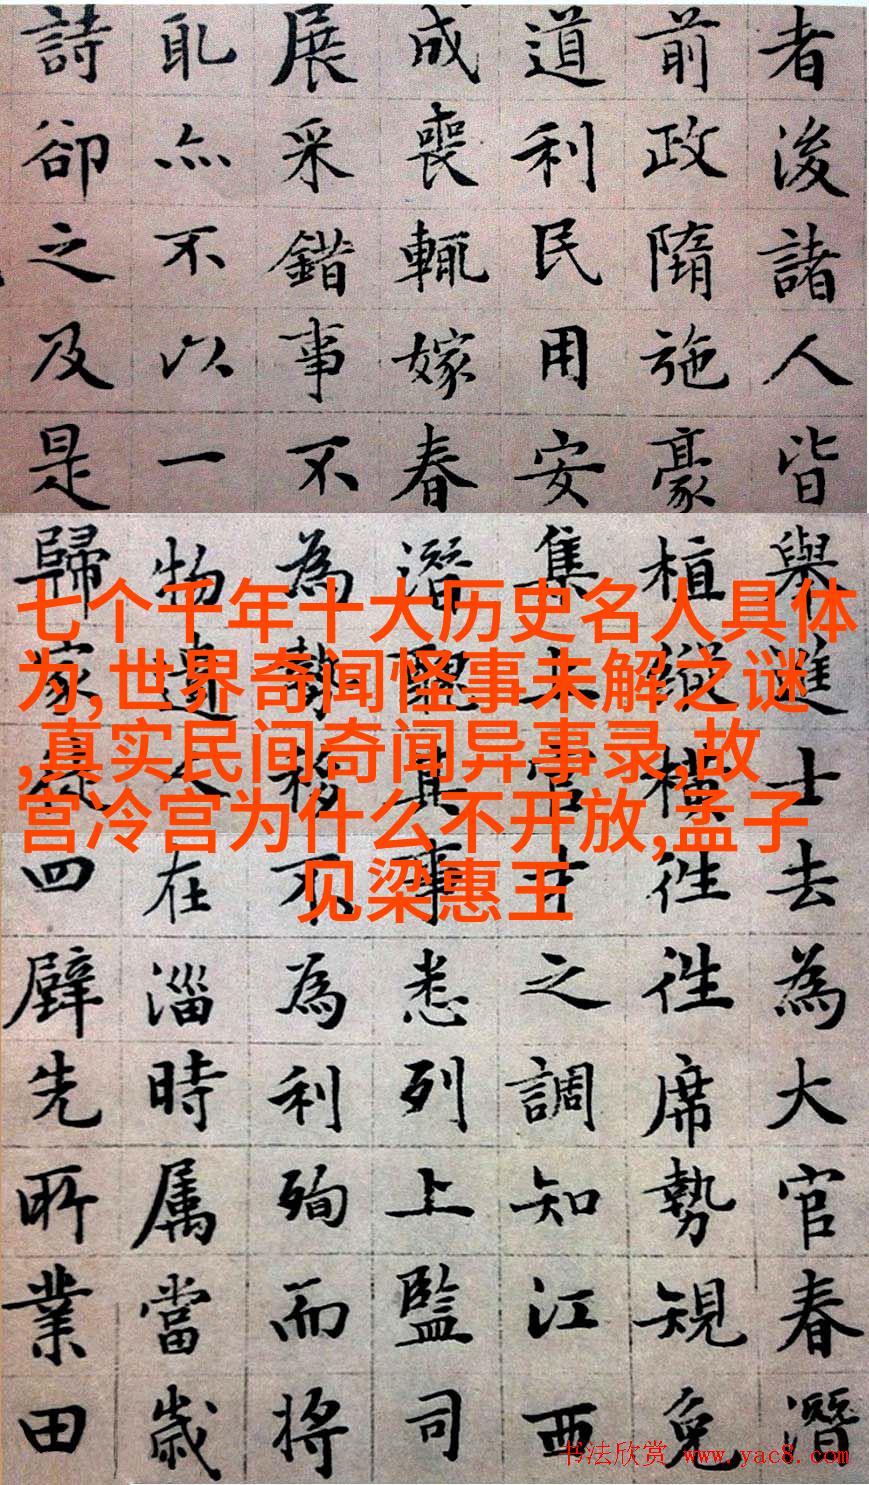 者後諸人皆舉進士去為大官春潛
前政隋施豪植縱橫徃徃席勢規免
道利民用安集官才之調知江西
成喪輒嫁春潛醜其事悉列上監司
展采錯事不為勢移不為利殉而將
亦不以一物遺人在淄時属當歲
詩卻之及是歸家四壁先所業田
七个千年十大历史名人具体
为,世界奇闻怪事未解之谜
,真实民间奇闻异事录,故
宫冷宫为什么不开放,孟子
见梁惠王
书法欣赏 www.yac8.com